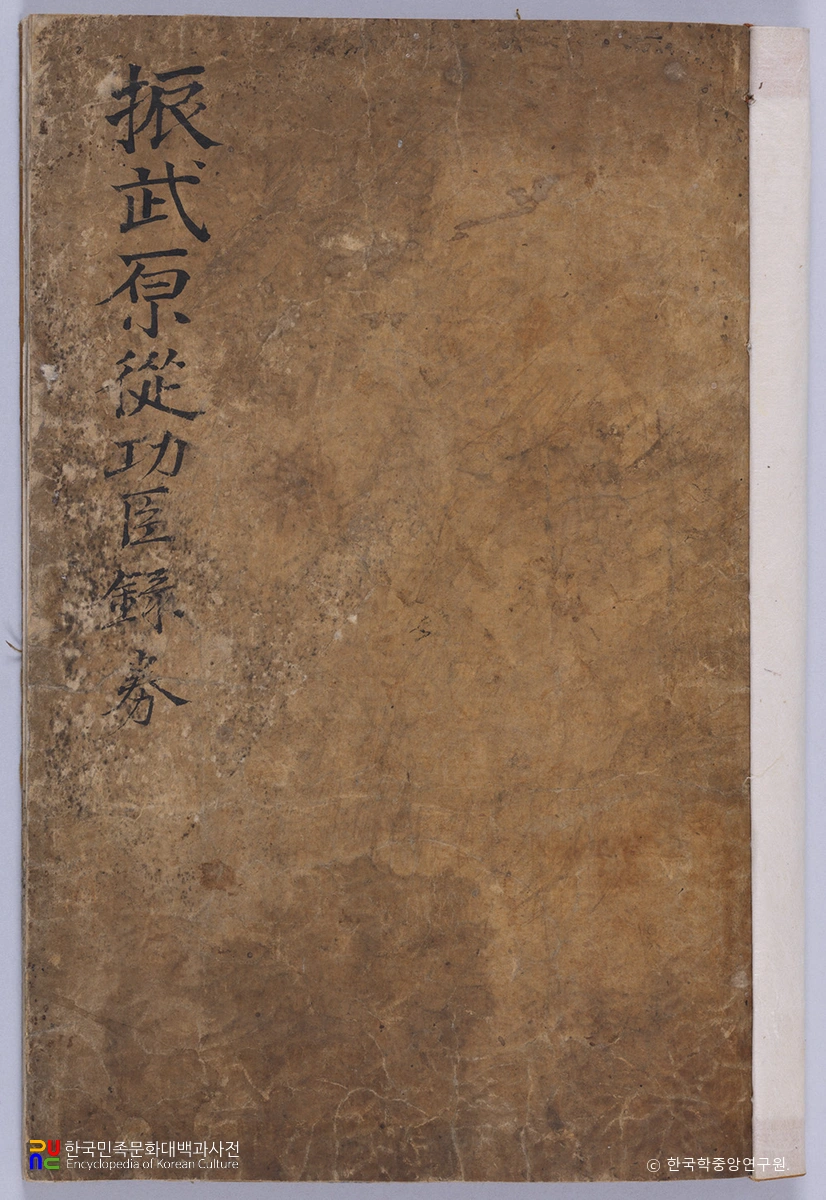 振武原從功臣錄券
한국민족문화대백과사전
Encyclopedia of Korean Culture
© 한국학중앙연구원.